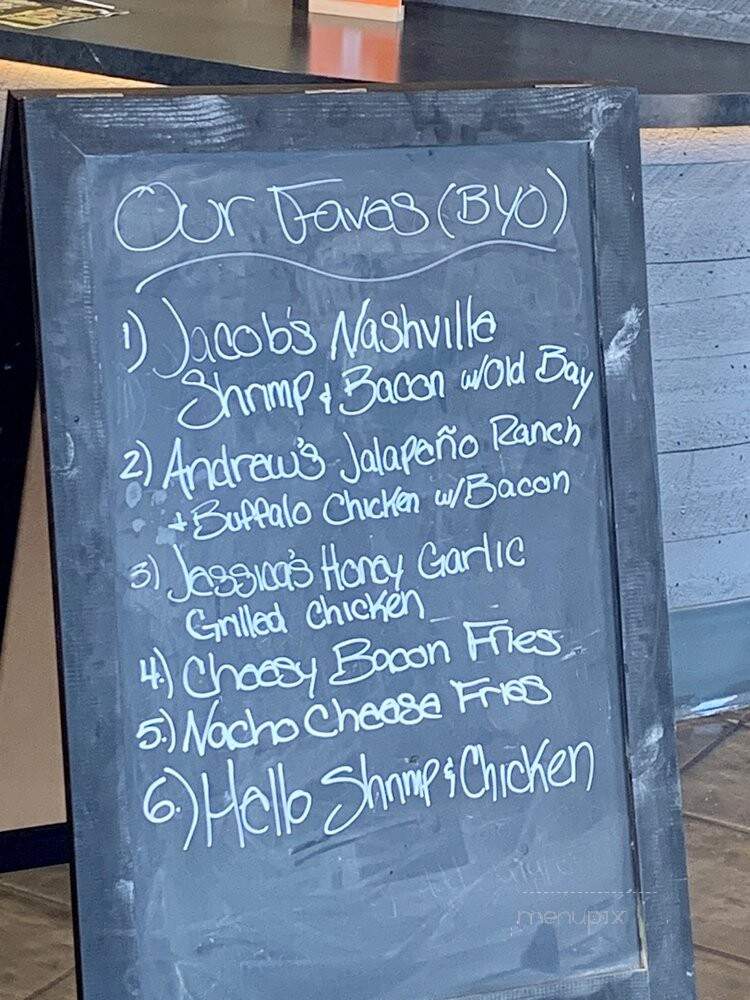 Our Faves (BYO)
1) Jacob's Nashville
Shrimp & Bacon w/Old Bay
2) Andrew's Jalapeño Ranch
+ Buffalo Chicken w/Bacon
3) Jessica's Honey Garlic
Grilled Chicken
4.) Cheesy Bacon Fries
5.) Nacho Cheese Fries
6.) Hello Shrimp & Chicken
menupix